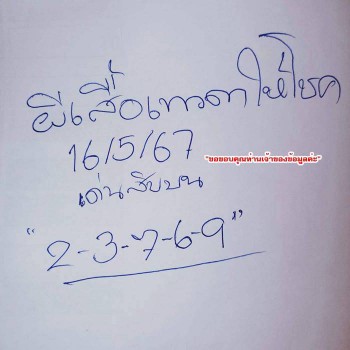 ผีเสื้อเทวดาให้โชค
16/5/67
"ขอขอบคุณท่านเจ้าของข้อมูลค่ะ"
เด่นสิบบน
"2-3-7-6-9"